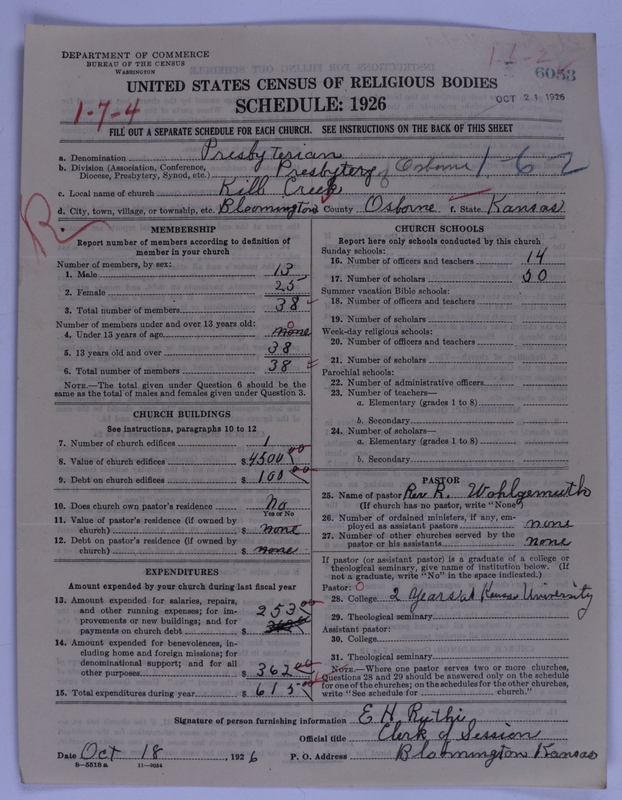 DEPARTMENT OF COMMERCE
BUREAU OF THE CENSUS
WASHINGTON
1-1-2
6053
UNITED STATES CENSUS OF RELIGIOUS BODIES
OCT 21 1926
SCHEDULE: 1926
1-7-4
FILL OUT A SEPARATE SCHEDULE FOR EACH CHURCH. SEE INSTRUCTIONS ON THE BACK OF THIS SHEET
a. Denomination Presbyterian
b. Division (Association, Conference, Diocese, Presbytery, Synod, etc.) Presbytery of Osborne 1-6-2
c. Local name of church Kill Creek
d. City, town, village, or township, etc. Bloomington e. County Osborne f. State Kansas
R
MEMBERSHIP
Report number of members according to definition of member in your church
Number of members, by sex:
1. Male 13
2. Female 25
3. Total number of members 38
Number of members under and over 13 years old:
4. Under 13 years of age none 0
5. 13 years old and over 38
6. Total number of members 38
NOTE.—The total given under Question 6 should be the same as the total of males and females given under Question 3.
CHURCH BUILDINGS
See instructions, paragraphs 10 to 12
7. Number of church edifices 1
8. Value of church edifices $4500 00
9. Debt on church edifices $ 100 00
10. Does church own pastor's residence No
Yes or No
11. Value of pastor's residence (if owned by church) $ none
12. Debt on pastor's residence (if owned by church) $ none
EXPENDITURES
Amount expended by your church during last fiscal year
13. Amount expended for salaries, repairs, and other running expenses; for improvements or new buildings; and for payments on church debt $ 253 00
14. Amount expended for benevolences, including home and foreign missions; for denominational support; and for all other purposes $ 362 00
15. Total expenditures during year $ 615 00
CHURCH SCHOOLS
Report here only schools conducted by this church
Sunday schools:
16. Number of officers and teachers 14
17. Number of scholars 50
Summer vacation Bible schools:
18. Number of officers and teachers
19. Number of scholars
Week-day religious schools:
20. Number of officers and teachers
21. Number of scholars
Parochial schools:
22. Number of administrative officers
23. Number of teachers—
a. Elementary (grades 1 to 8)
b. Secondary
24. Number of scholars—
a. Elementary (grades 1 to 8)
b. Secondary
PASTOR
25. Name of pastor Rev. R. Wohlgemuth
(If church has no pastor, write "None")
26. Number of ordained ministers, if any, employed as assistant pastors none
27. Number of other churches served by the pastor or his assistants none
If pastor (or assistant pastor) is a graduate of a college or theological seminary, give name of institution below. (If not a graduate, write "No" in the space indicated.)
Pastor: 0
28. College 2 Years at Kansas University
29. Theological seminary
Assistant pastor:
30. College
31. Theological seminary
NOTE.—Where one pastor serves two or more churches, Questions 28 and 29 should be answered only on the schedule for one of the churches; on the schedules for the other churches, write "See schedule for church."
Signature of person furnishing information E. H. Ruthi
Official title Clerk of Session
Date Oct 18, 1926 P. O. Address Bloomington Kansas
8-5518a 11-9054